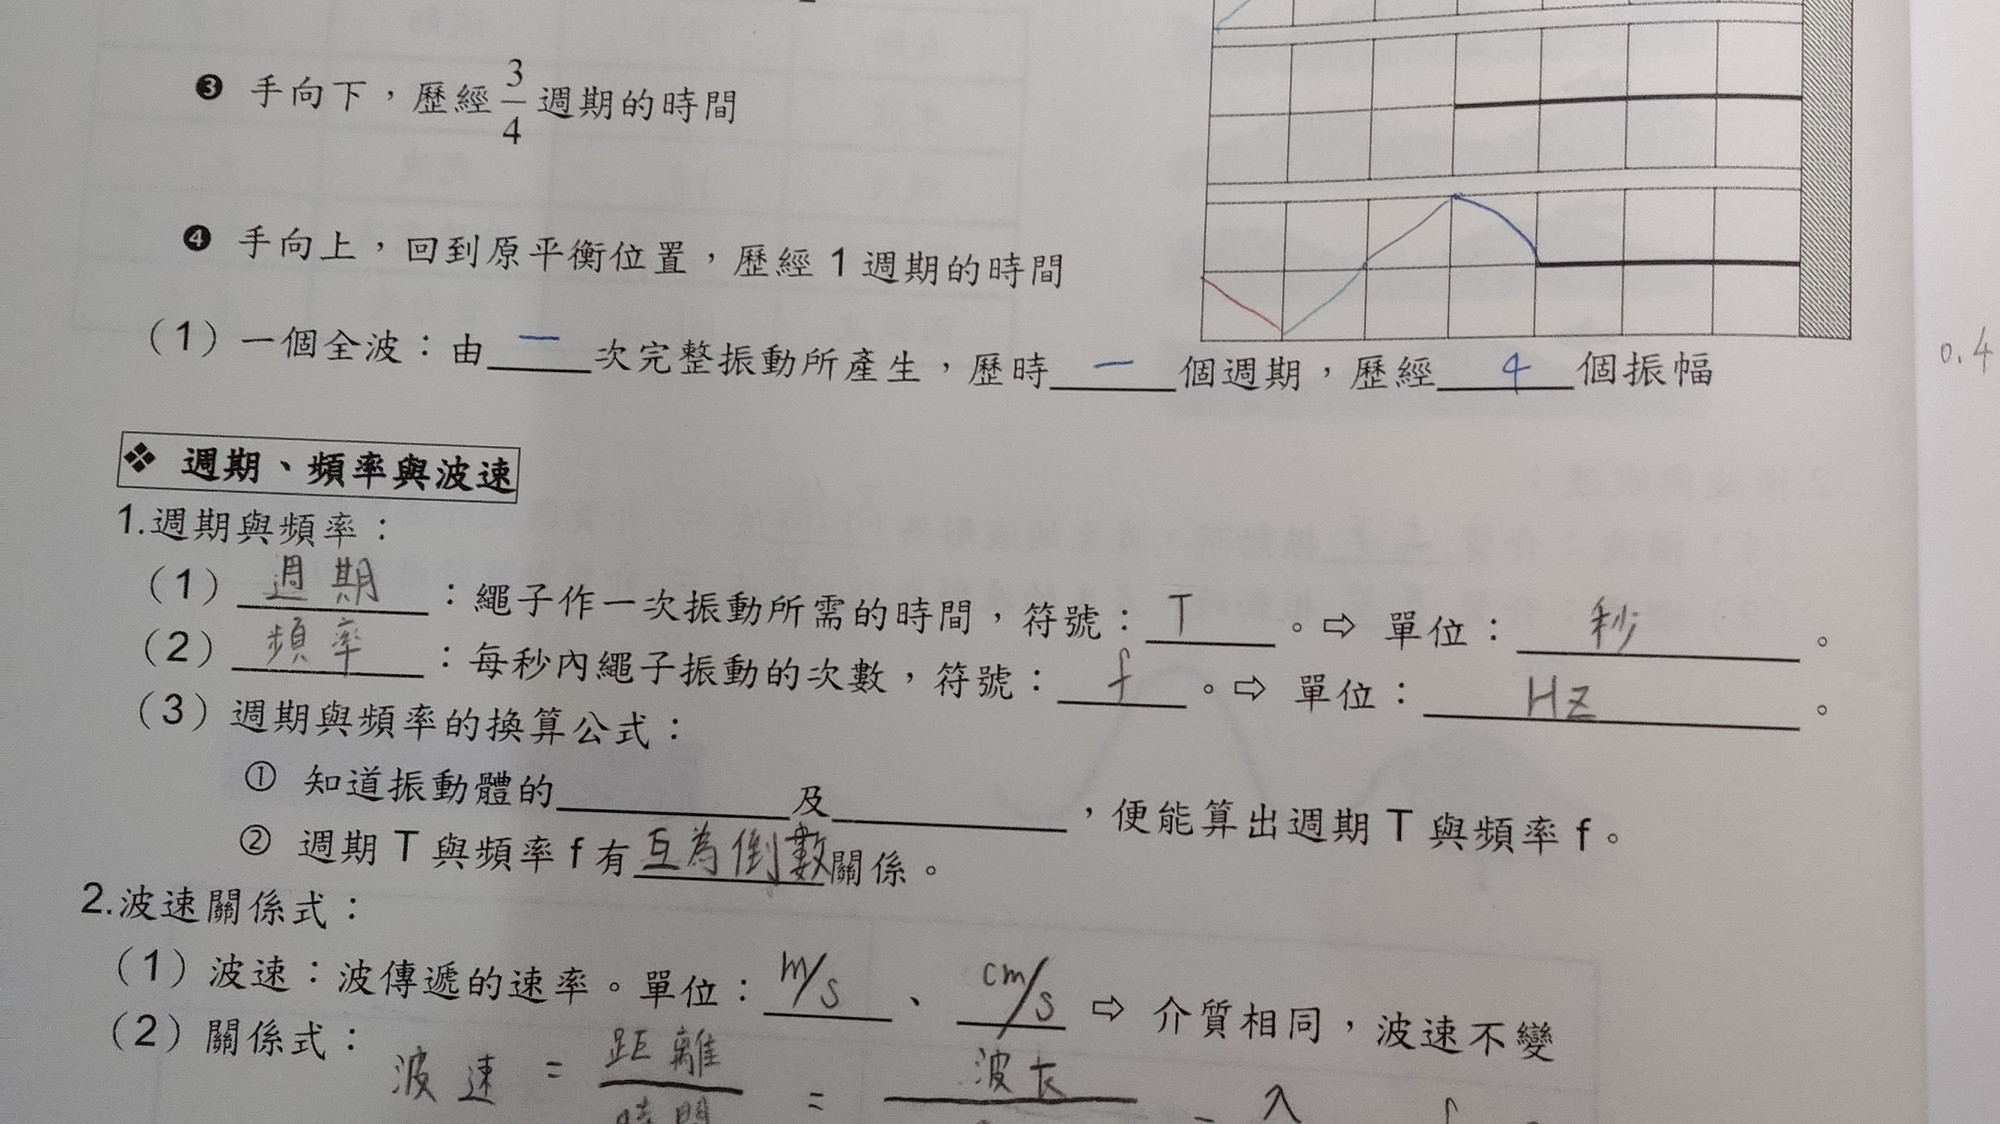 ❸ 手向下，歷經 3/4 週期的時間
❹ 手向上，回到原平衡位置，歷經 1 週期的時間
（1）一個全波：由 一 次完整振動所產生，歷時 一 個週期，歷經 4 個振幅
0.4
❖ 週期、頻率與波速
1.週期與頻率：
（1）週期：繩子作一次振動所需的時間，符號：T。⇨ 單位：秒。
（2）頻率：每秒內繩子振動的次數，符號：f。⇨ 單位：Hz。
（3）週期與頻率的換算公式：
① 知道振動體的______及______，便能算出週期 T 與頻率 f。
② 週期 T 與頻率 f 有互為倒數關係。
2.波速關係式：
（1）波速：波傳遞的速率。單位：m/s、cm/s ⇨ 介質相同，波速不變
（2）關係式：波速 = 距離/時間 = 波長 λ